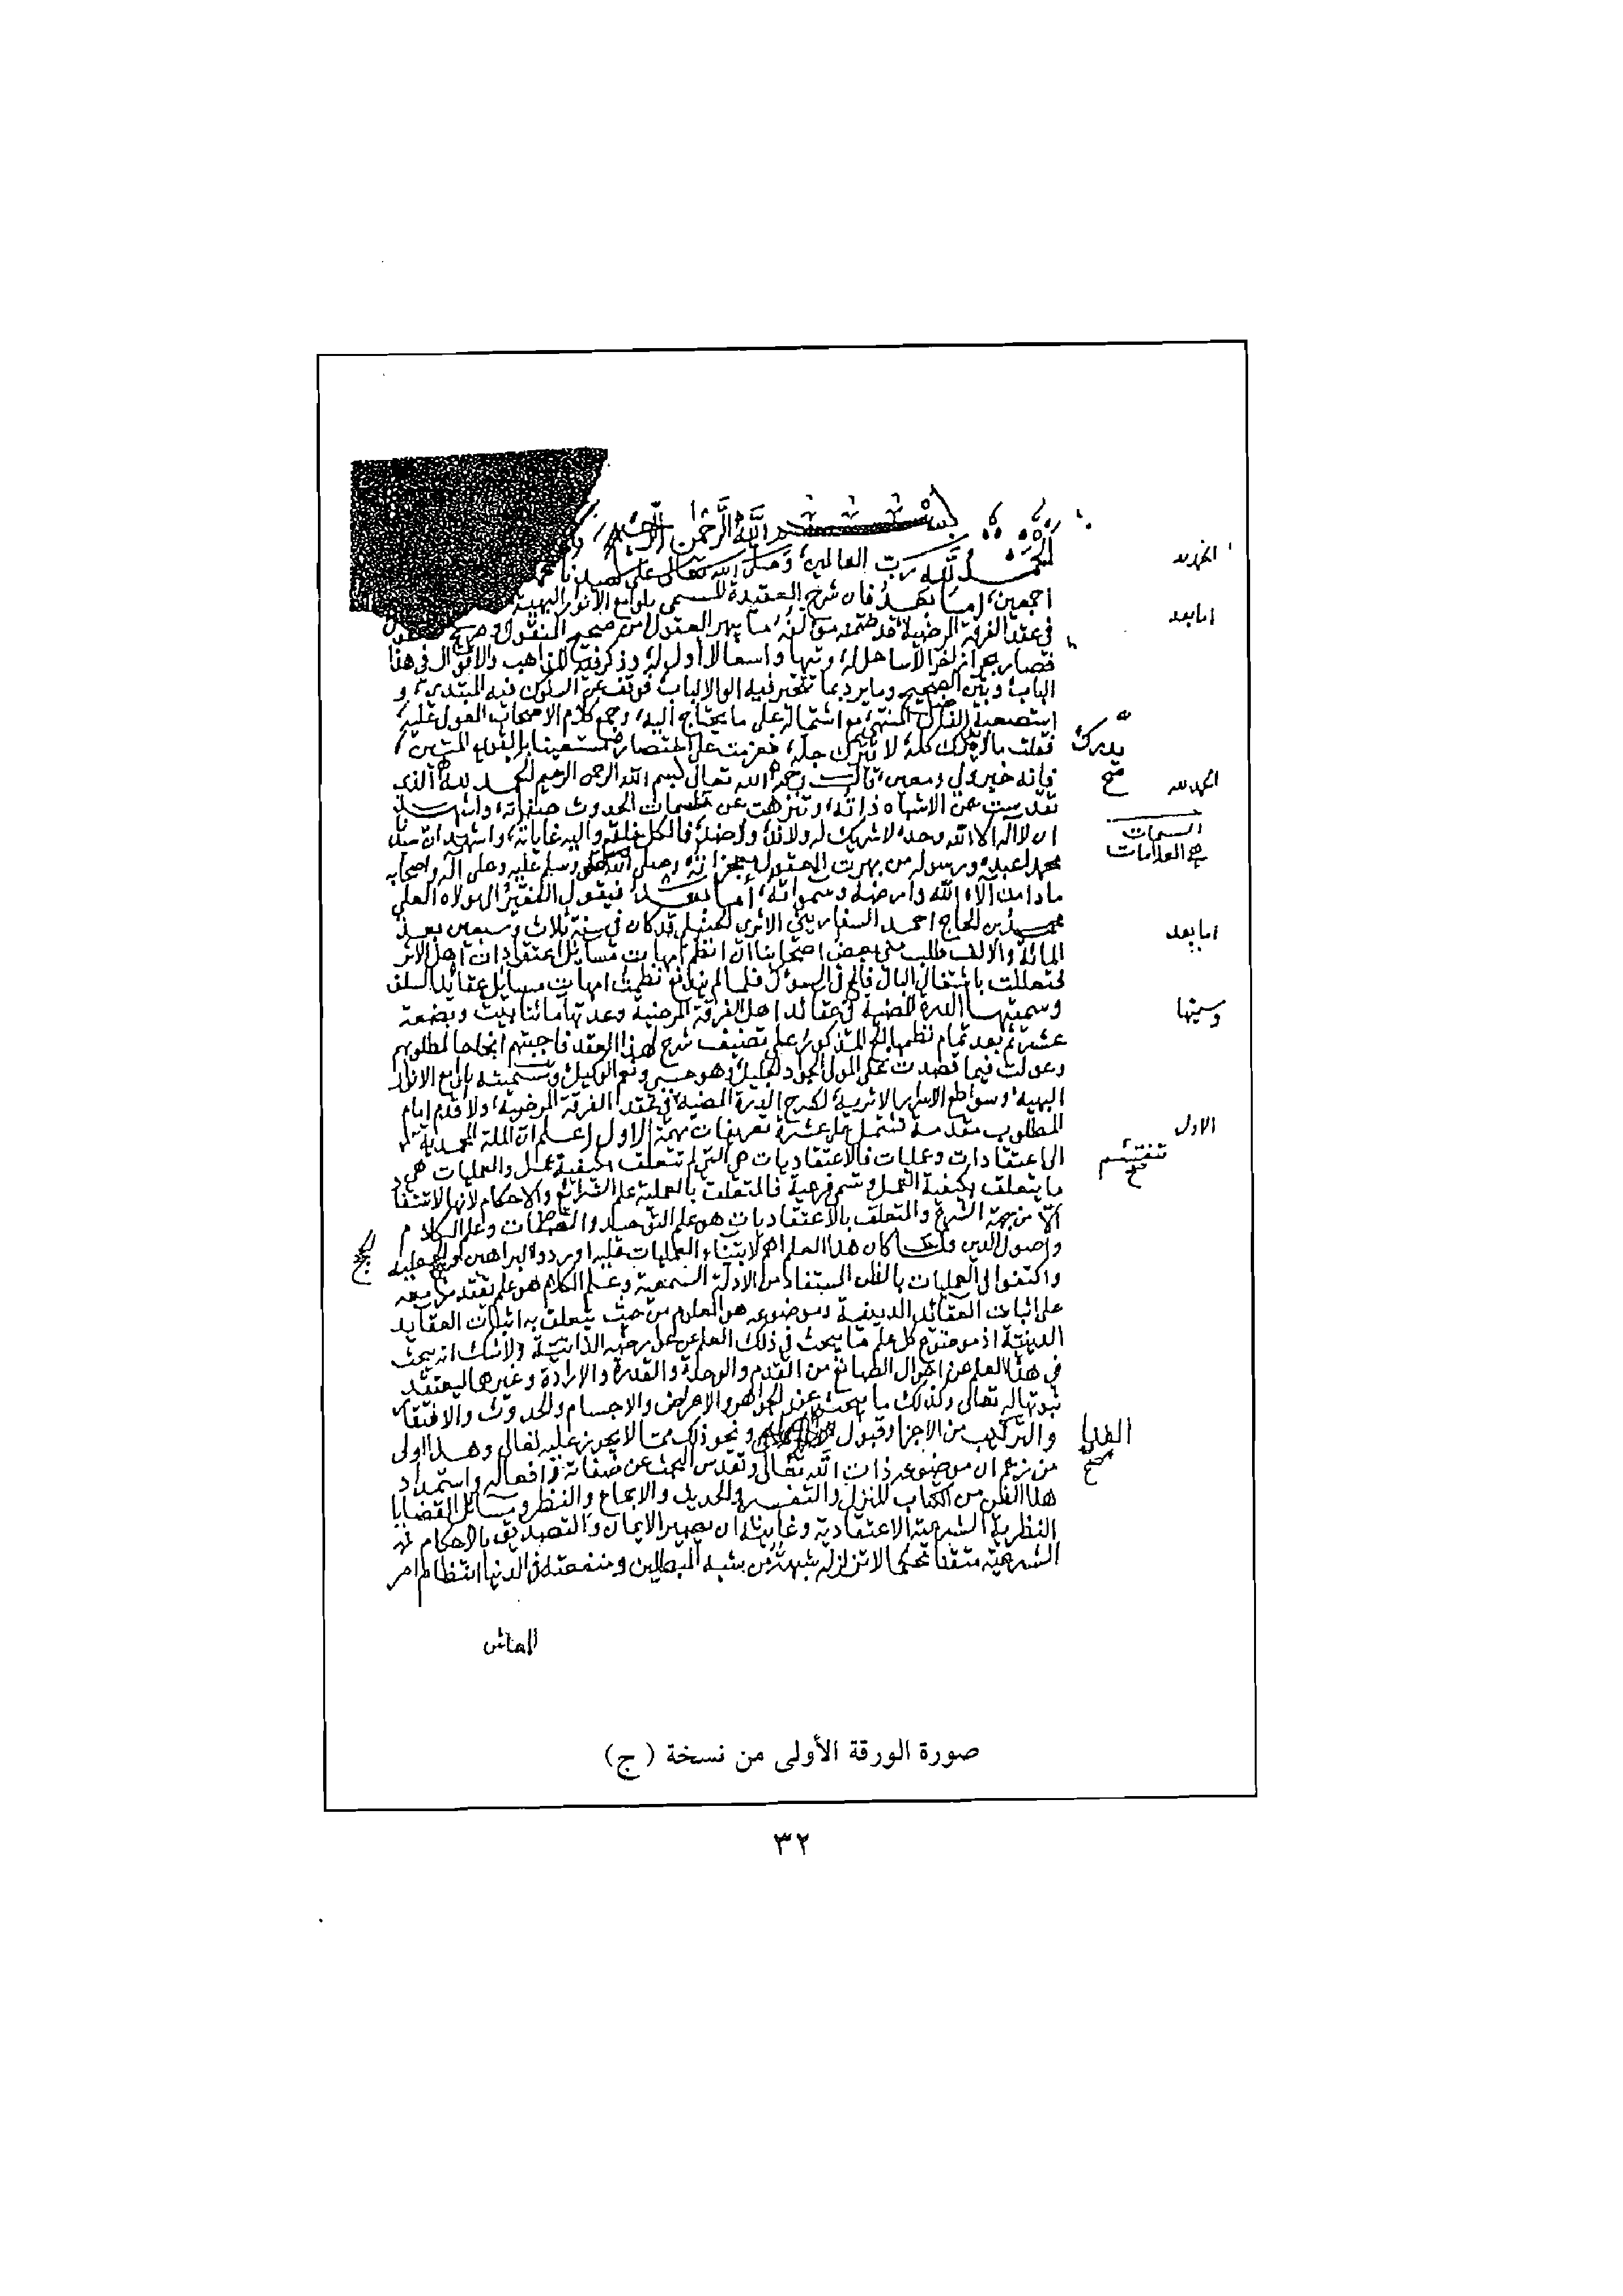 بسم الله الرحمن الرحيم
الحمد لله رب العالمين وصلى الله تعالى على سيدنا
اجمعين اما بعد فان شرح العقيدة المسمى بلوامع الانوار البهية
في عقد الفرقة المرضية قد ضمنه مؤلفه ما يبهر العقول من صحيح المنقول وصريح
فصار بحرا زاخرا لا ساحل له وذكر فيه المذاهب والاقوال في هذا
الباب وبين الصحيح وما يرد بما تتحير فيه اولو الالباب فوقف عن السلوك فيه المبتدي و
استصعبه القاري المنتهي مع اشتماله على ما يحتاج اليه وجمع كلام الاصحاب المعول عليه
فقلت ما لا يدرك كله لا يترك جله فعزمت على اختصاره مستعينا بالقوي المتين
فانه خير ومعين قال رحمه الله تعالى بسم الله الرحمن الرحيم الحمد لله الذي
تقدست عن الاشباه ذاته وتنزهت عن سمات الحدوث صفاته واشهد
ان لا اله الا الله وحده لا شريك له ولا ند ولا ضد فالكل خلقه واليه غاياته واشهد ان سيدنا
محمدا عبده ورسوله من بهرت العقول معجزاته صلى الله وسلم عليه وعلى آله واصحابه
ما دامت آلاء الله وارضه وسمواته اما بعد فيقول الفقير الى مولاه العلي
محمد بن الحاج احمد السفاريني الاثري الحنبلي قد كان في سنة ثلاث وسبعين بعد
المائة والالف طلب مني بعض اصحابنا ان انظم امهات مسائل اعتقادات اهل الاثر
فتعللت باشتغال البال فالح في السؤال فلما لم نظمت امهات مسائل عقائد السلف
وسميتها الدرة المضية في عقائد اهل الفرقة المرضية وعدتها مائتا بيت وبضعة
عشر ثم بعد تمام نظمها الح المذكور على تصنيف شرح لهذا العقد فاجبتهم انجاحا لمطلوبهم
وعولت فيما قصدت على المولى الجواد الجليل وهو حسبي ونعم الوكيل وسميته بلوامع الانوار
البهية وسواطع الاسرار الاثرية لشرح الدرة المضية في عقد الفرقة المرضية ولاقدم امام
المطلوب مقدمة تشتمل على عشرة تعريفات مهمة الاول اعلم ان الملة المحمدية
الى اعتقادات وعمليات فالاعتقاديات هي التي لم تتعلق بكيفية عمل والعمليات هي
ما يتعلق بكيفية العمل وتسمى فرعية فالمتعلق بالعملية علم الشرائع والاحكام لانها لا تستفاد
الا من جهة الشرع والمتعلق بالاعتقاديات هو علم التوحيد والصفات وعلم الكلام
واصول الدين ولما كان هذا العلم اهم لابتناء العمليات عليه اوردوا البراهين والحجج عليه
واكتفوا في العمليات بالظن المستفاد من الادلة السمعية وعلم الكلام هو علم يقتدر معه
على اثبات العقائد الدينية وموضوعه هو المعلوم من حيث يتعلق به اثبات العقايد
الدينية اذ موضوع كل علم ما يبحث في ذلك العلم عن عوارضه الذاتية ولا شك انه يبحث
في هذا العلم عن احوال الصانع من القدم والوحدة والقدرة والارادة وغيرها ليعتقد
ثبوتها له تعالى وكذلك ما يبحث عن الجواهر والاعراض والاجسام والحدوث والافتقار
والتركيب من الاجزا وقبول ونحو ذلك مما لا يجوز عليه تعالى وهذا اولى
من زعم ان موضوعه ذات الله تعالى وتقدس للبحث عن صفاته وافعاله واستمداد
هذا الفن من الكتاب المنزل والتفسير والحديث والاجماع والنظر ومسائله القضايا
النظرية الشرعية الاعتقادية وغايته ان يصير الايمان والتصديق بالاحكام
الشرعية متقنا محكما لا تزلزله شبهة من شبه المبطلين ومنفعته في الدنيا انتظام امر
المعاش
الحمد لله
اما بعد
يدرك
صح
الحمد لله
السمات
هي العلامات
اما بعد
وسميتها
الاول
تنقسم
صح
الفنا
صح
صورة الورقة الأولى من نسخة (ج)
٣٢